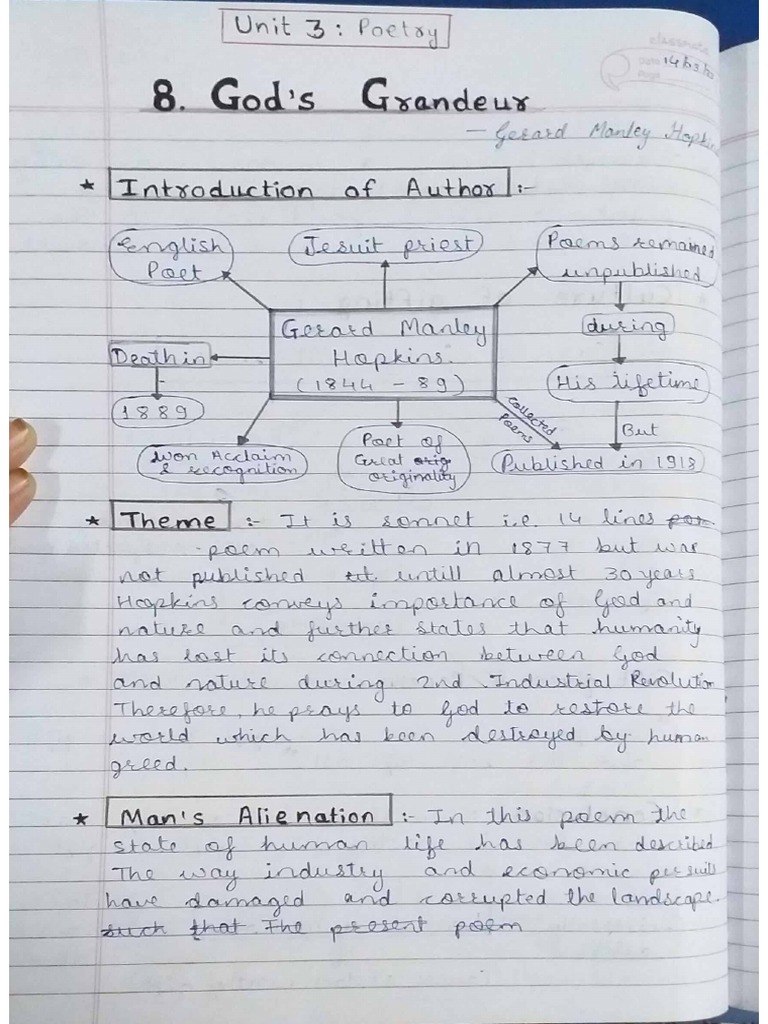 Unit 3 : Poetry
classmate
Date 14
Page
8. God's Grandeur
- Gerard Manley Hopkins
* Introduction of Author :-
English Poet
Jesuit priest
Poems remained unpublished
Gerard Manley
Hopkins.
(1844 - 89)
during
Death in
His lifetime
1889
But
Collected Poems
Won Acclaim
& recognition
Poet of
Great orig
originality
Published in 1918
* Theme :- It is sonnet i.e. 14 lines
poem written in 1877 but was
not published untill almost 30 years
Hopkins conveys importance of God and
nature and further states that humanity
has lost its connection between God
and nature during 2nd Industrial Revolution
Therefore, he prays to God to restore the
world which has been destroyed by human
greed.
* Man's Alienation :- In this poem the
state of human life has been described
The way industry and economic pursuits
have damaged and corrupted the landscape.
such that The present poem